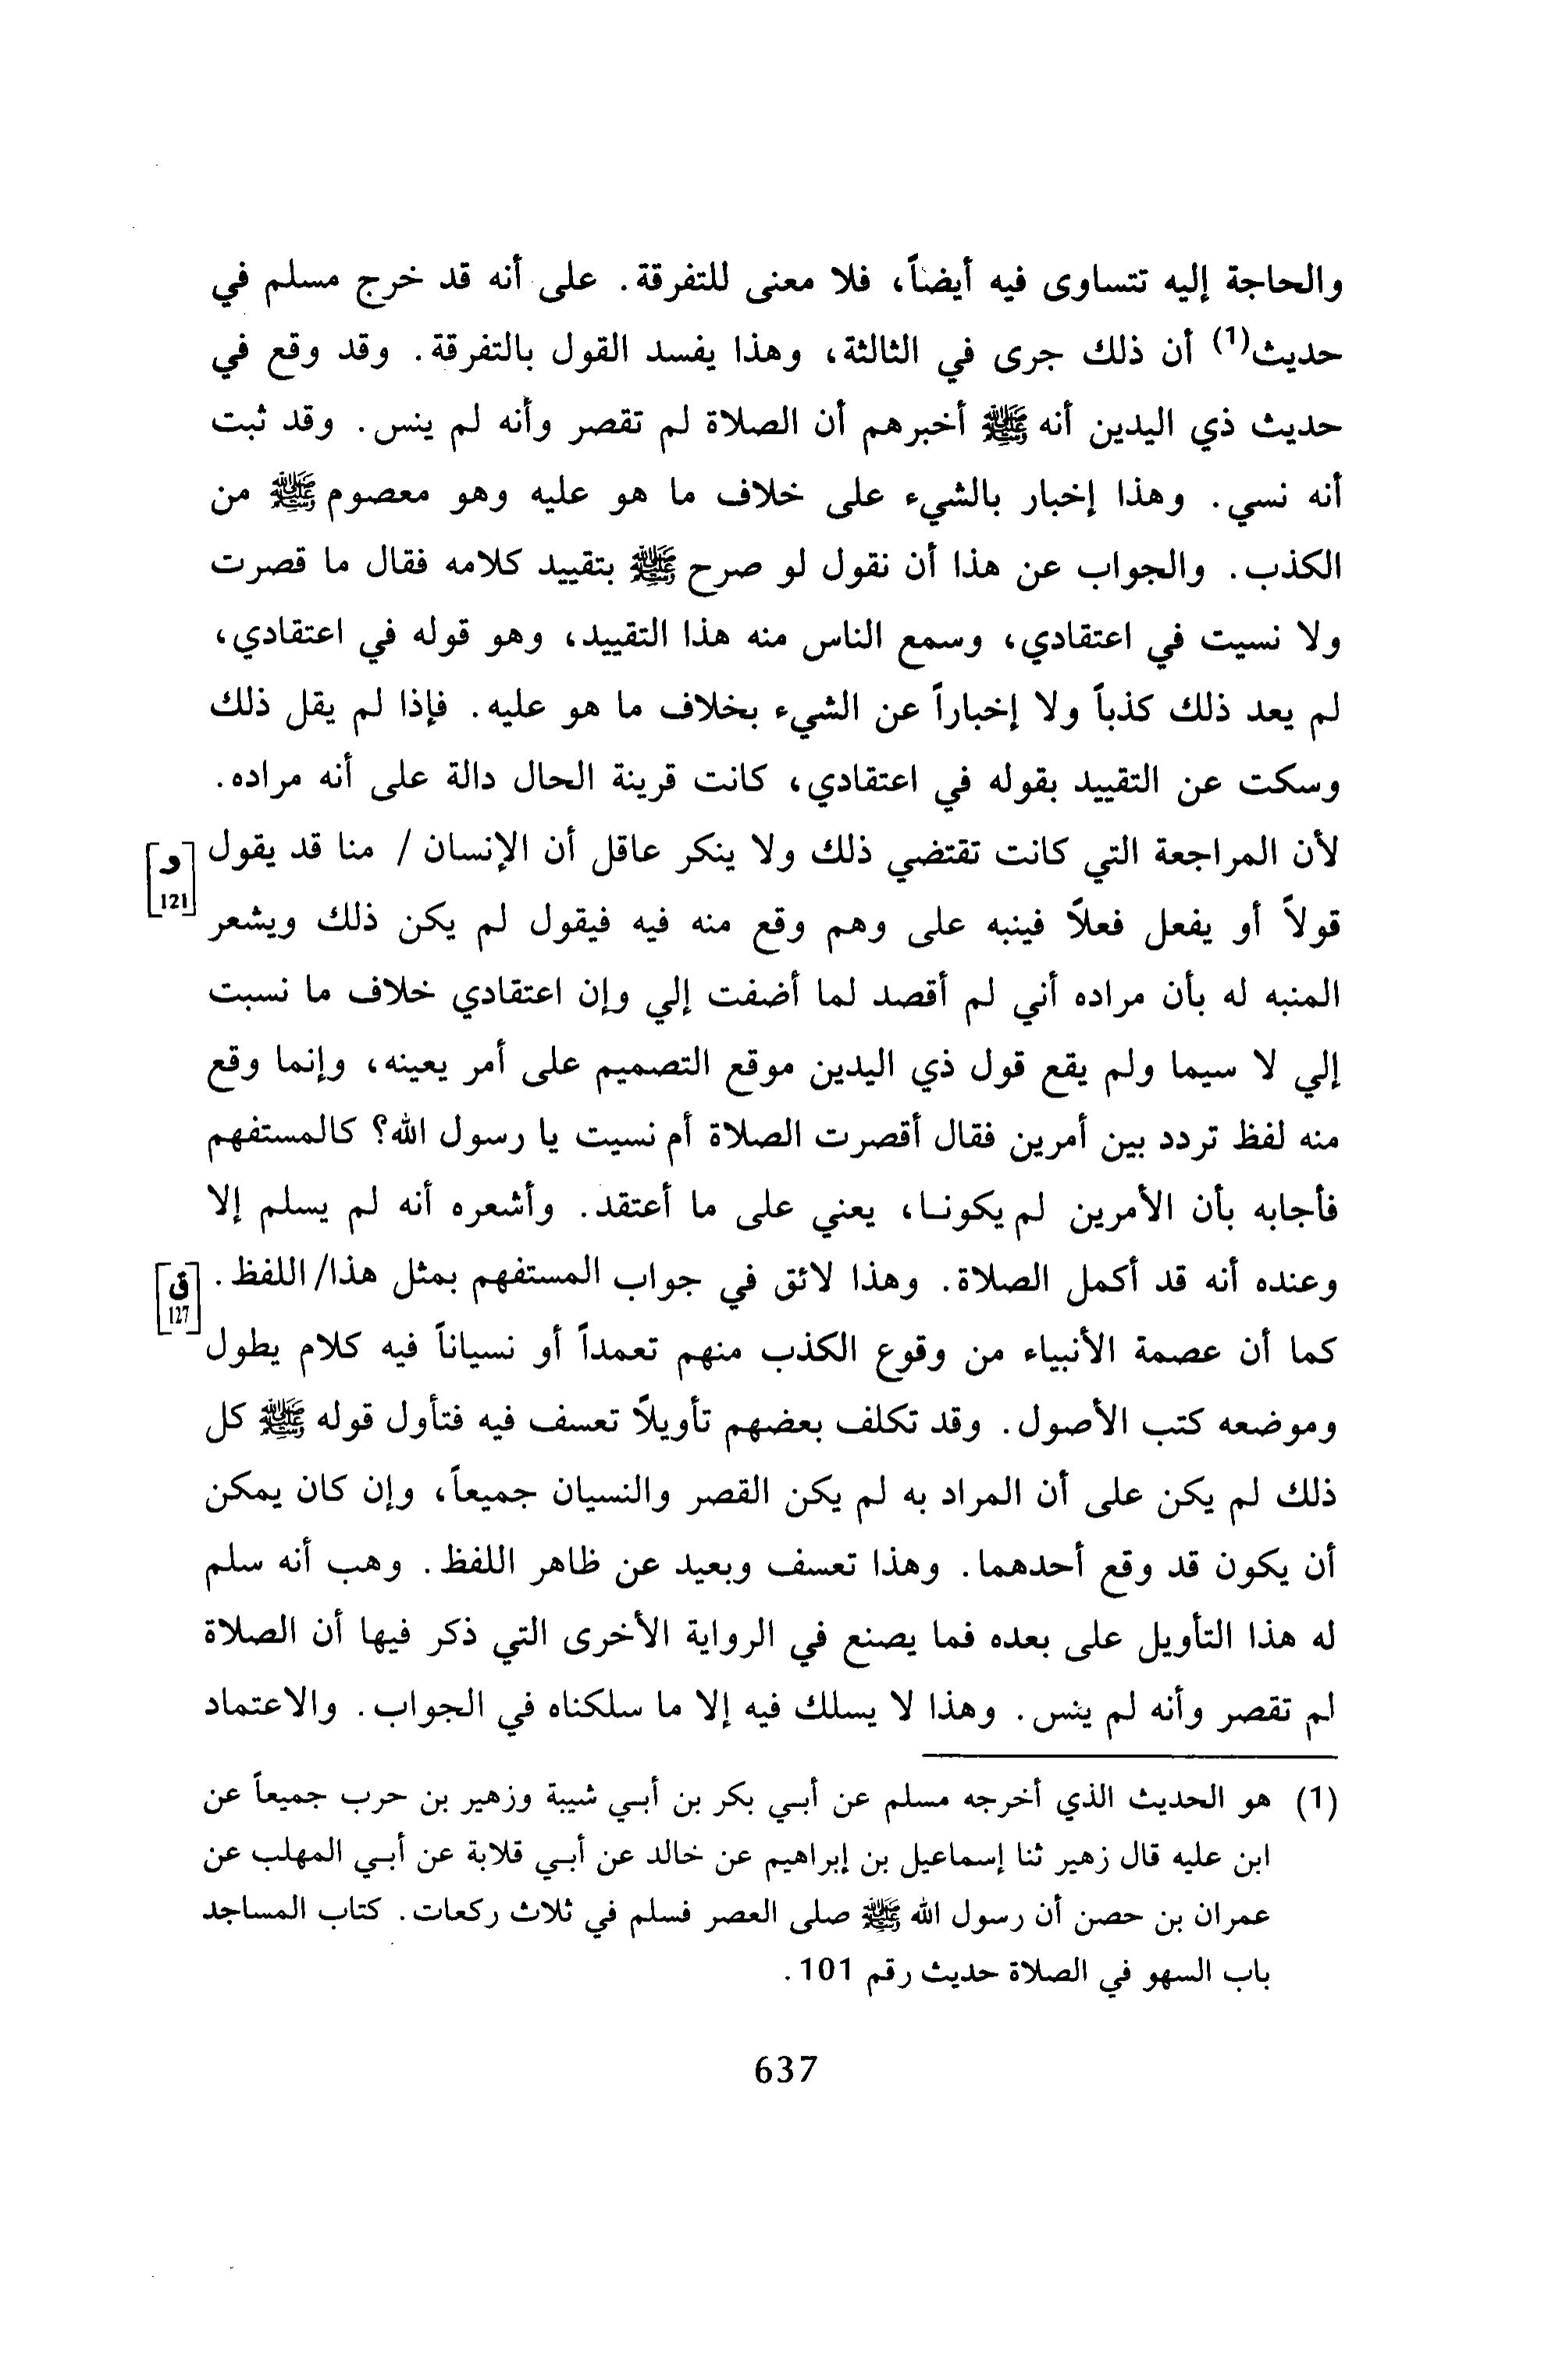 والحاجة إليه تتساوى فيه أيضاً، فلا معنى للتفرقة. على أنه قد خرج مسلم في
حديث(1) أن ذلك جرى في الثالثة، وهذا يفسد القول بالتفرقة. وقد وقع في
حديث ذي اليدين أنه ﷺ أخبرهم أن الصلاة لم تقصر وأنه لم ينس. وقد ثبت
أنه نسي. وهذا إخبار بالشيء على خلاف ما هو عليه وهو معصوم ﷺ من
الكذب. والجواب عن هذا أن نقول لو صرح ﷺ بتقييد كلامه فقال ما قصرت
ولا نسيت في اعتقادي، وسمع الناس منه هذا التقييد، وهو قوله في اعتقادي،
لم يعد ذلك كذباً ولا إخباراً عن الشيء بخلاف ما هو عليه. فإذا لم يقل ذلك
وسكت عن التقييد بقوله في اعتقادي، كانت قرينة الحال دالة على أنه مراده.
لأن المراجعة التي كانت تقتضي ذلك ولا ينكر عاقل أن الإنسان / منا قد يقول [و 121]
قولاً أو يفعل فعلاً فينبه على وهم وقع منه فيه فيقول لم يكن ذلك ويشعر
المنبه له بأن مراده أني لم أقصد لما أضفت إلي وإن اعتقادي خلاف ما نسبت
إلي لا سيما ولم يقع قول ذي اليدين موقع التصميم على أمر يعينه، وإنما وقع
منه لفظ تردد بين أمرين فقال أقصرت الصلاة أم نسيت يا رسول الله؟ كالمستفهم
فأجابه بأن الأمرين لم يكونـا، يعني على ما أعتقد. وأشعره أنه لم يسلم إلا
وعنده أنه قد أكمل الصلاة. وهذا لائق في جواب المستفهم بمثل هذا/ اللفظ. [ق 127]
كما أن عصمة الأنبياء من وقوع الكذب منهم تعمداً أو نسياناً فيه كلام يطول
وموضعه كتب الأصول. وقد تكلف بعضهم تأويلاً تعسف فيه فتأول قوله ﷺ كل
ذلك لم يكن على أن المراد به لم يكن القصر والنسيان جميعاً، وإن كان يمكن
أن يكون قد وقع أحدهما. وهذا تعسف وبعيد عن ظاهر اللفظ. وهب أنه سلم
له هذا التأويل على بعده فما يصنع في الرواية الأخرى التي ذكر فيها أن الصلاة
لم تقصر وأنه لم ينس. وهذا لا يسلك فيه إلا ما سلكناه في الجواب. والاعتماد
(1) هو الحديث الذي أخرجه مسلم عن أبـي بكر بن أبـي شيبة وزهير بن حرب جميعاً عن
ابن عليه قال زهير ثنا إسماعيل بن إبراهيم عن خالد عن أبـي قلابة عن أبـي المهلب عن
عمران بن حصن أن رسول الله ﷺ صلى العصر فسلم في ثلاث ركعات. كتاب المساجد
باب السهو في الصلاة حديث رقم 101.
637